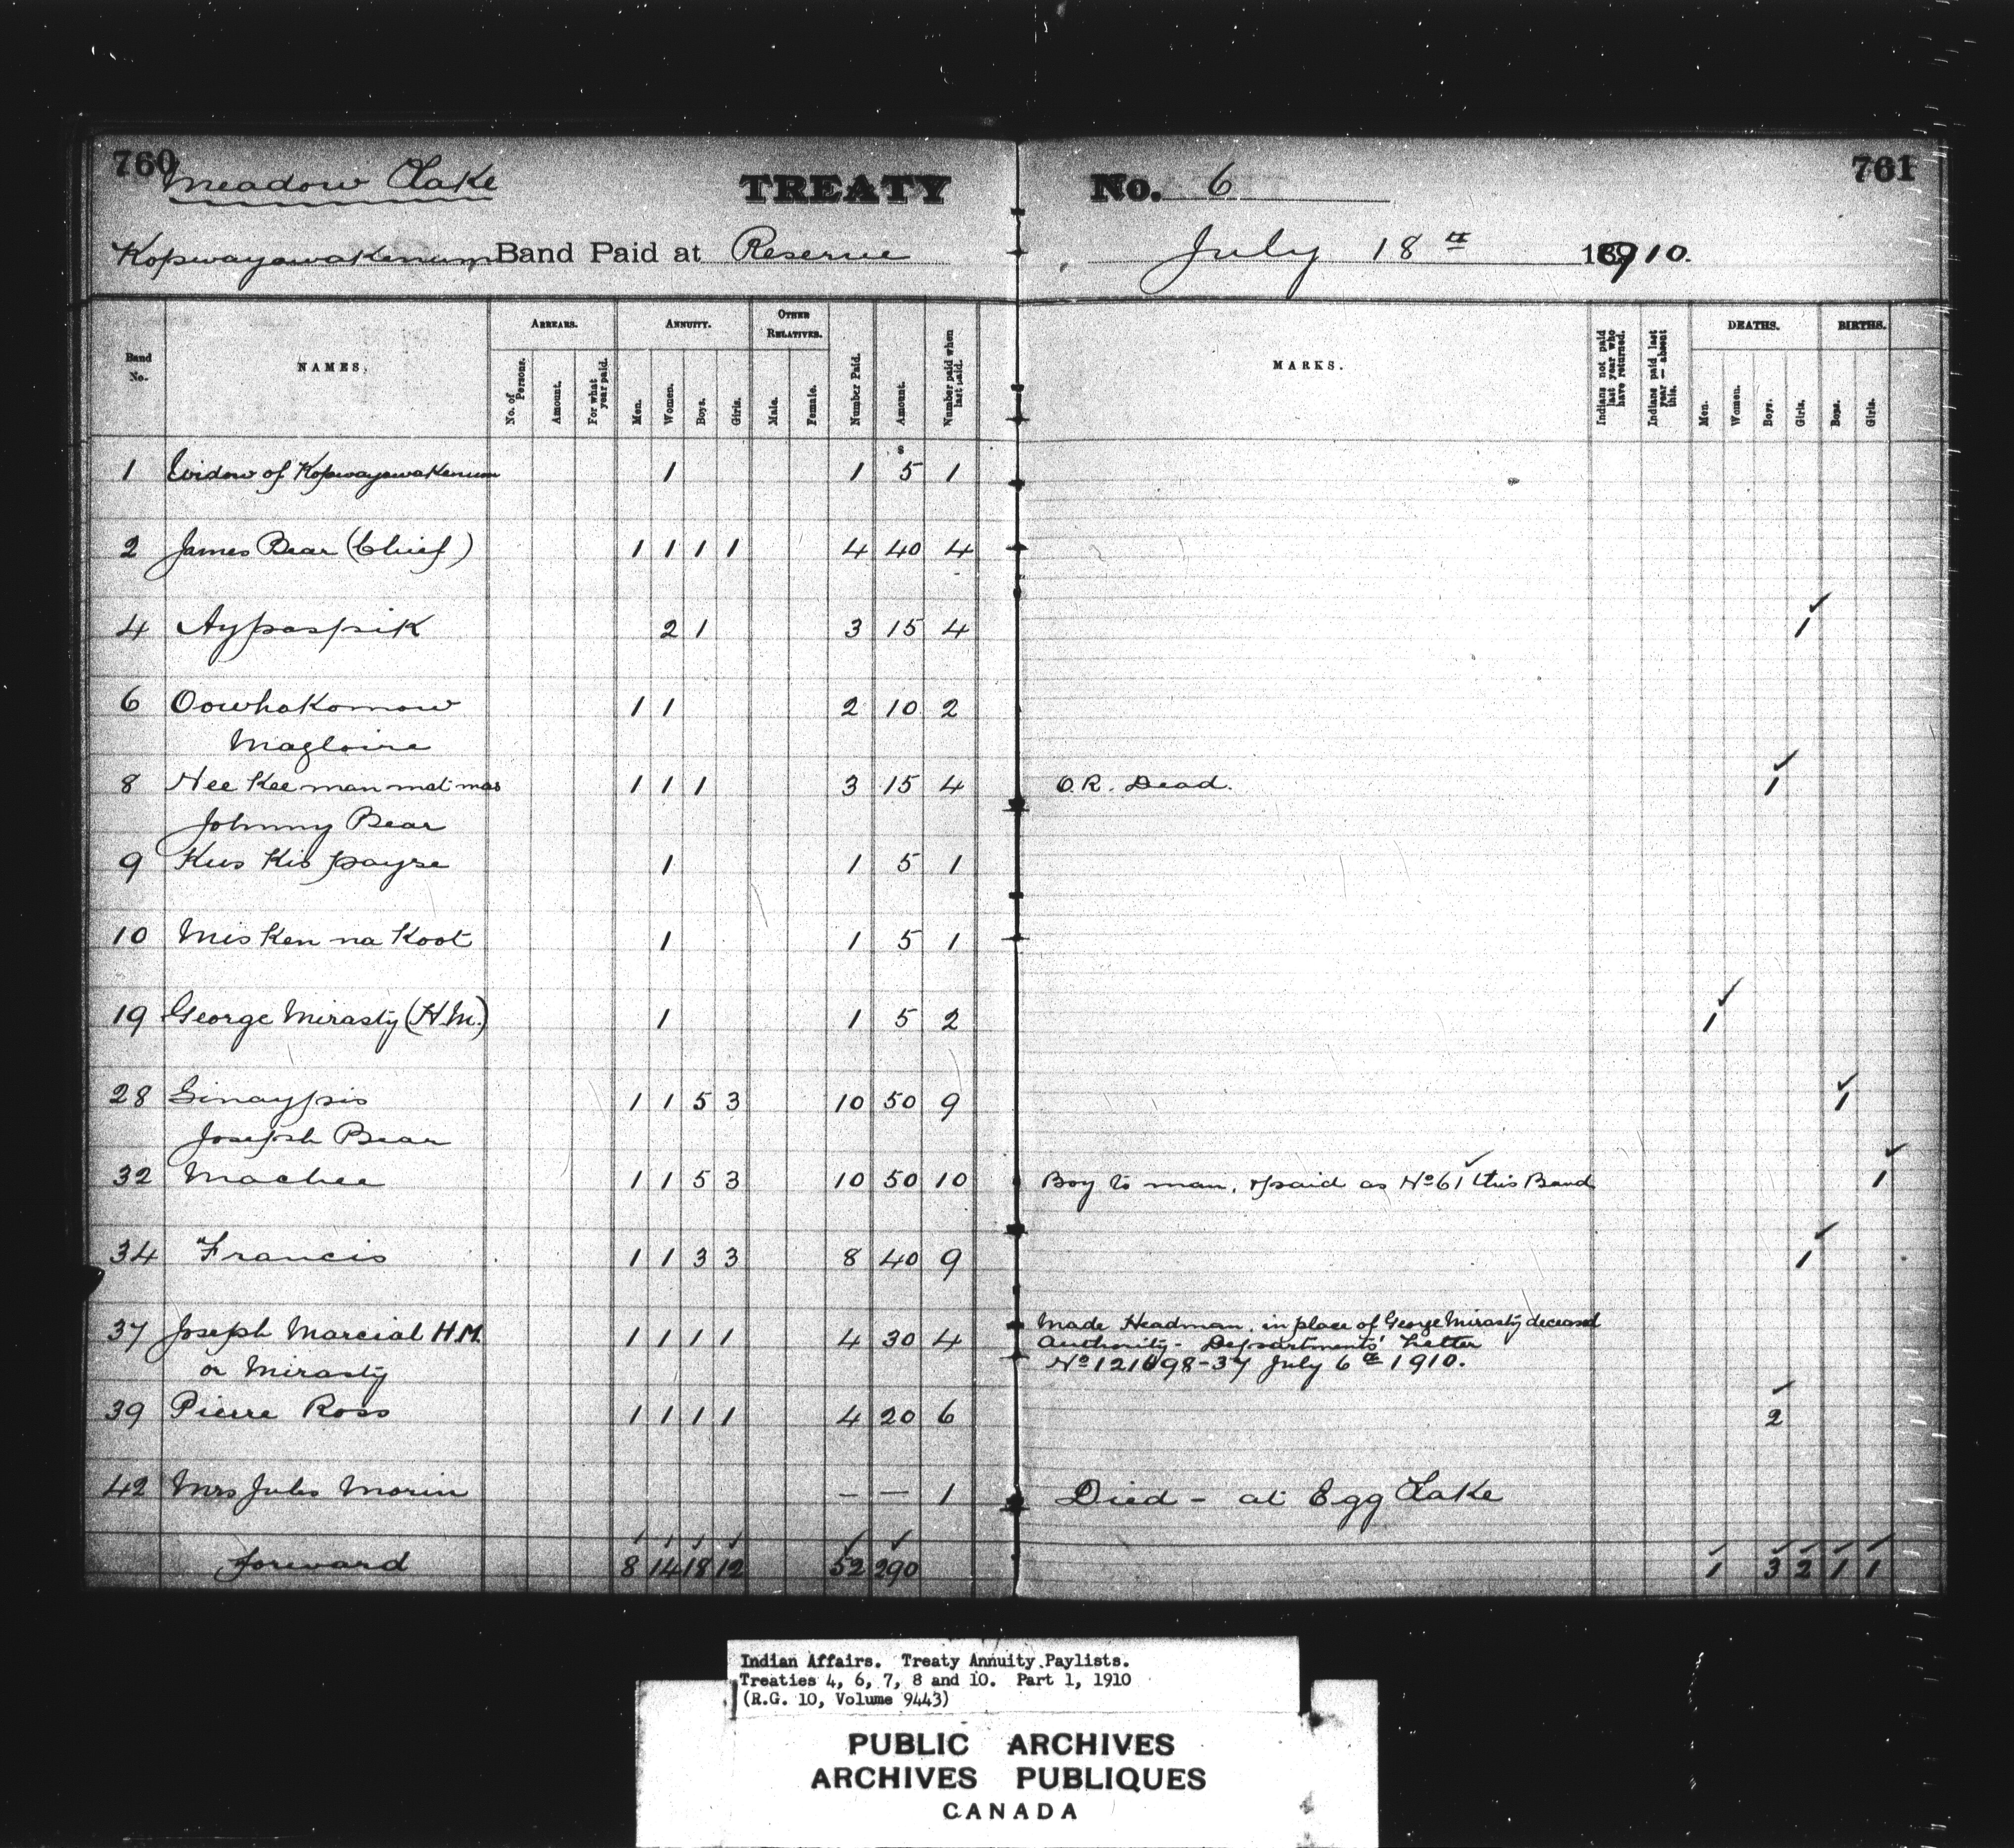 760
761
Meadow Lake
TREATY No. 6
Kopwayawakenum Band Paid at Reserve July 18th 1910.
Band No.
NAMES.
ARREARS.
No. of Persons.
Amount.
For what year paid.
ANNUITY.
Men.
Women.
Boys.
Girls.
OTHER RELATIVES.
Male.
Female.
Number Paid.
Amount.
Number paid when last paid.
MARKS.
Indians not paid last year who have returned.
Indians paid last year — absent this.
DEATHS.
Men.
Women.
Boys.
Girls.
BIRTHS.
Boys.
Girls.
$
1 Widow of Kopwayawakenum 1 1 5 1
2 James Bear (Chief) 1 1 1 1 4 40 4
4 Aypaspik 2 1 3 15 4 ✓ 1
6 Oowhakomow 1 1 2 10 2
Magloire
8 Nee Kee man mat mas 1 1 1 3 15 4 O.R. Dead. ✓ 1
Johnny Bear
9 Kus Kis payse 1 1 5 1
10 Mis Ken na Koot 1 1 5 1
19 George Mirasty (H.M.) 1 1 5 2 ✓ 1
28 Ginaypis 1 1 5 3 10 50 9 ✓ 1
Joseph Bear
32 Machee 1 1 5 3 10 50 10 Boy to man, & paid as No 61 ✓ this Band ✓ 1
34 Francis 1 1 3 3 8 40 9 ✓ 1
37 Joseph Marcial H.M. 1 1 1 1 4 30 4 Made Headman, in place of George Mirasty deceased
Authority - Departments' Letter
or Mirasty No 121698-37 July 6th 1910.
39 Pierre Ross 1 1 1 1 4 20 6 ✓ 2
42 Mrs Jules Morin — — 1 Died - at Egg Lake
forward 8 14 18 12 52 290 1 3 2 1 1
Indian Affairs. Treaty Annuity Paylists.
Treaties 4, 6, 7, 8 and 10. Part 1, 1910
(R.G. 10, Volume 9443)
PUBLIC ARCHIVES
ARCHIVES PUBLIQUES
CANADA